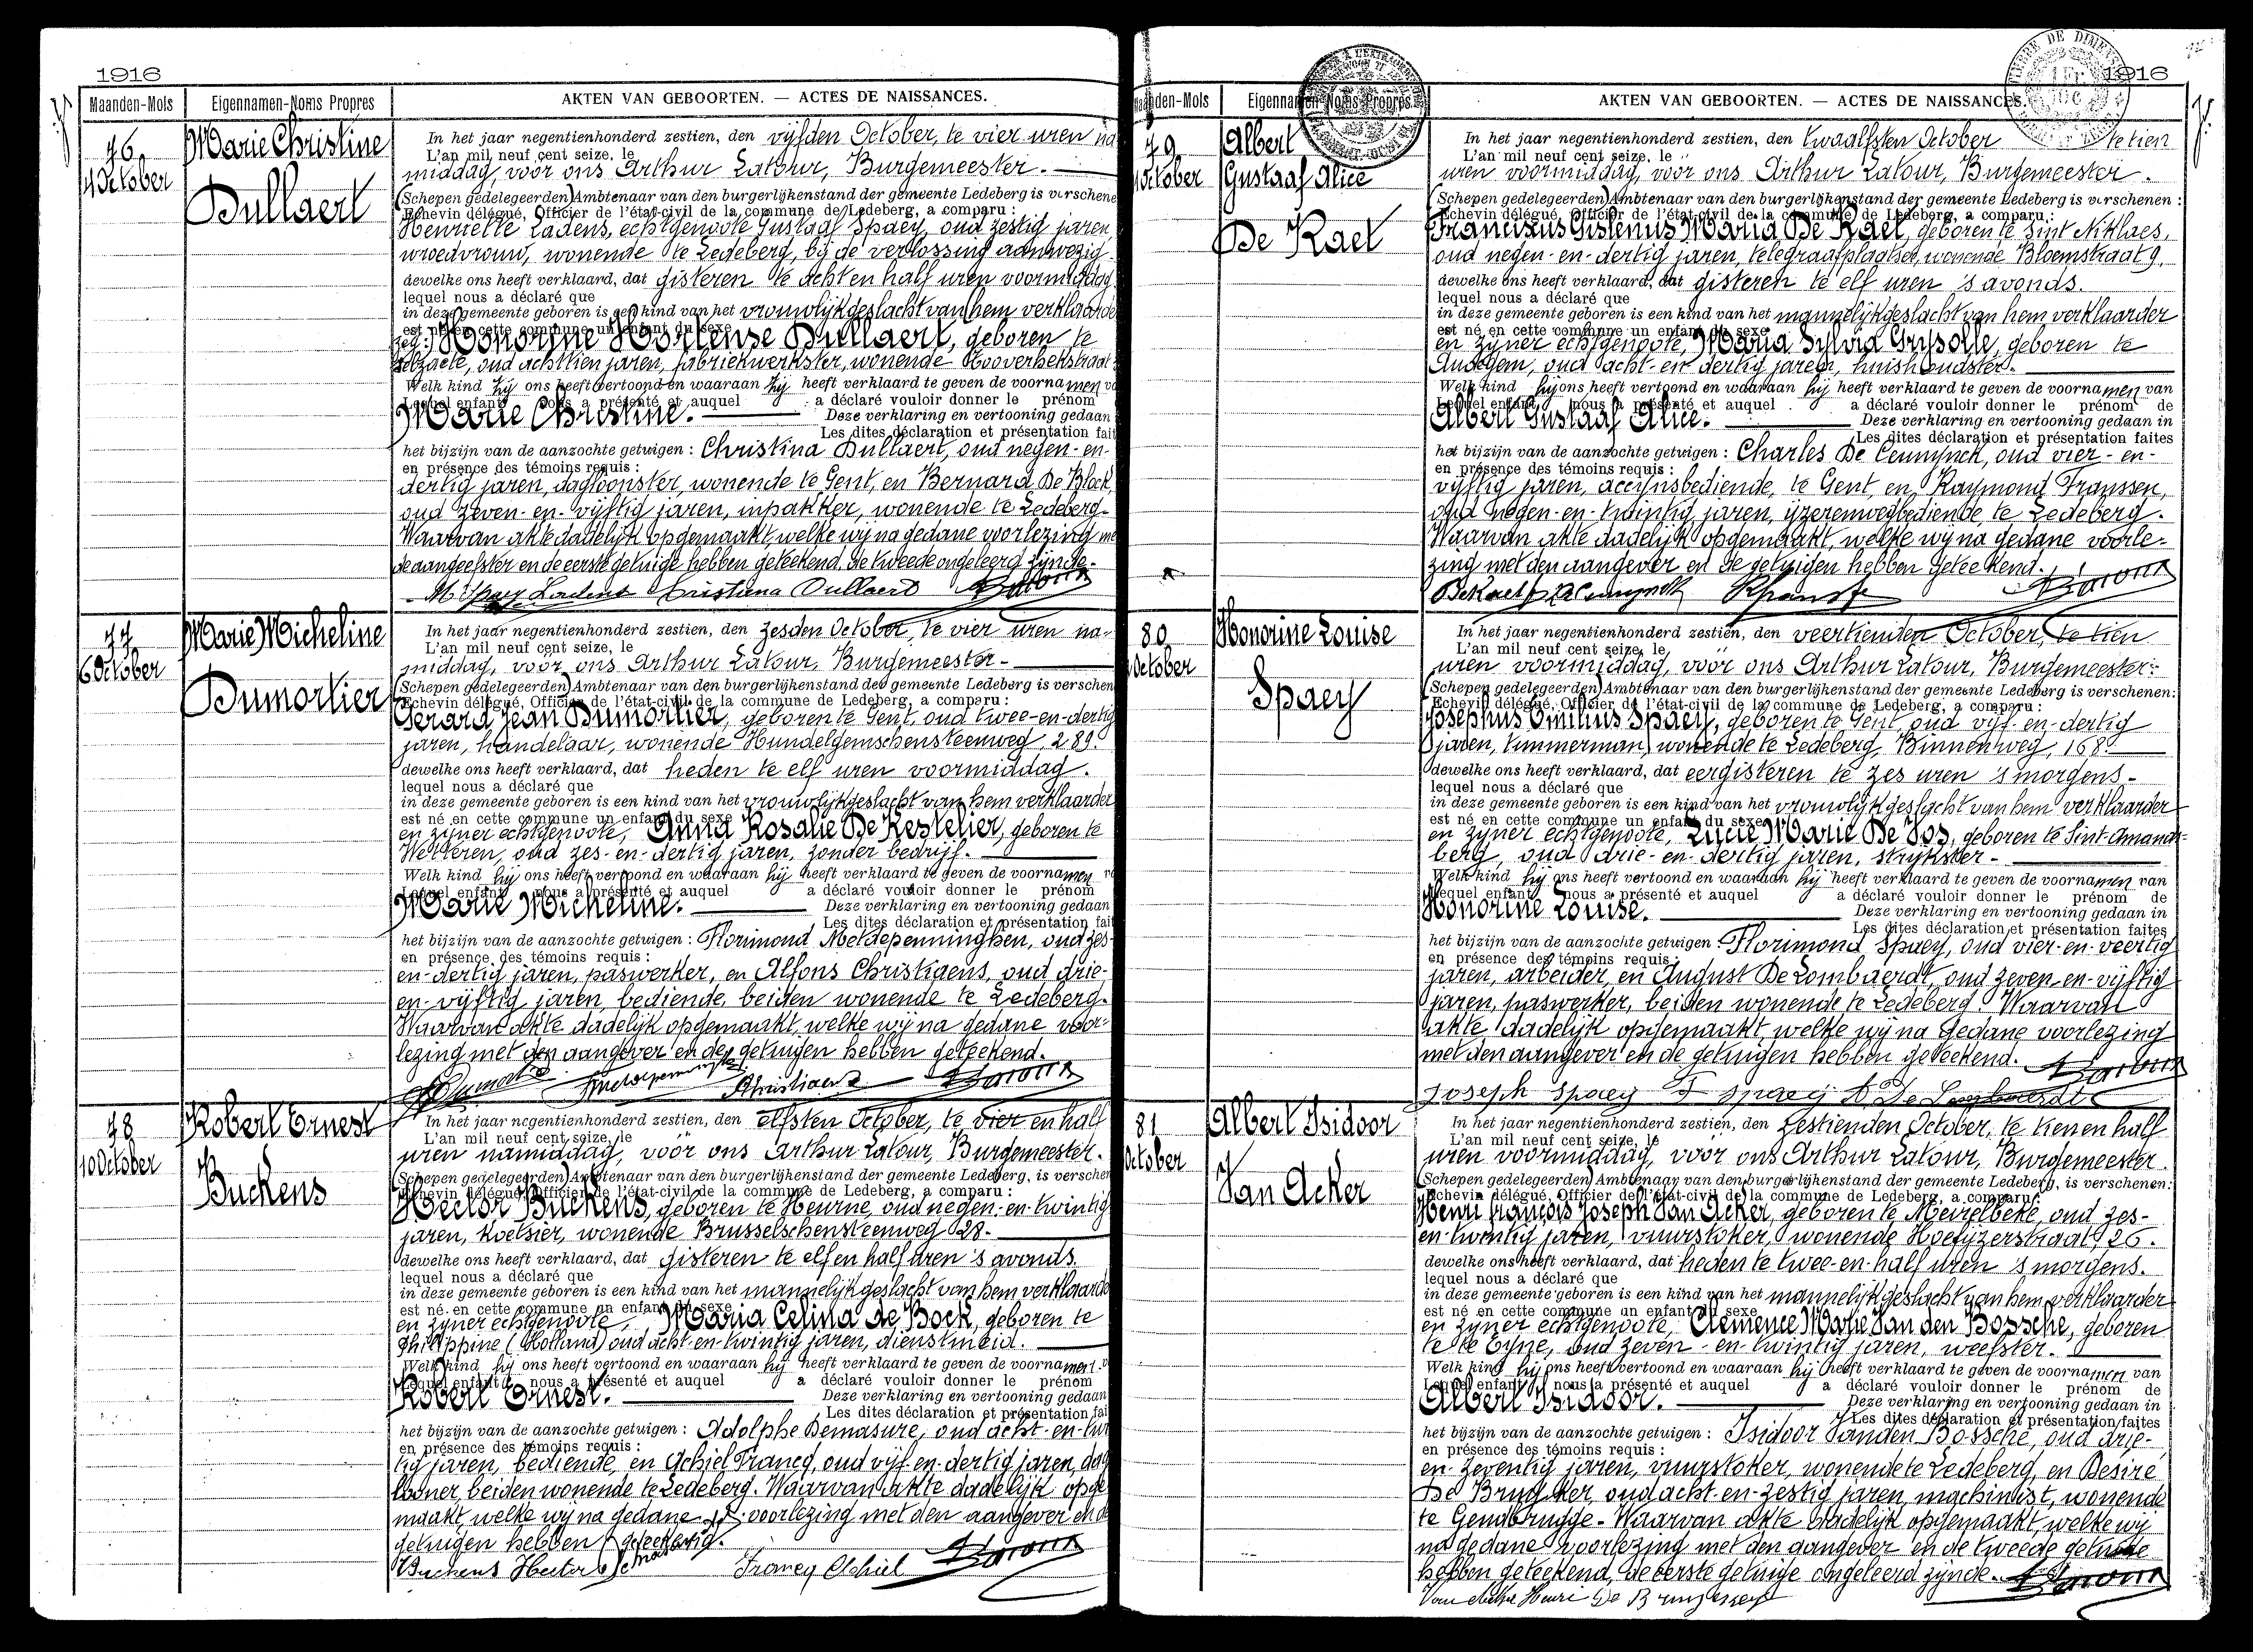 1916
Maanden-Mois Eigennamen-Noms Propres AKTEN VAN GEBOORTEN. — ACTES DE NAISSANCES.
76
4 October
Marie Christine
Dullaert
In het jaar negentienhonderd zestien, den vijfden October, te vier uren na
L'an mil neuf cent seize, le
middag, voor ons Arthur Latour, Burgemeester.
(Schepen gedelegeerden) Ambtenaar van den burgerlijkenstand der gemeente Ledeberg is verschene
Echevin délégué, Officier de l'état-civil de la commune de Ledeberg, a comparu :
Henriette Ladens, echtgenoote Gustaaf Spaey, oud zestig jaren,
vroedvrouw, wonende te Ledeberg, bij de verlossing aanwezig
dewelke ons heeft verklaard, dat gisteren te acht en half uren voormiddag
lequel nous a déclaré que
in deze gemeente geboren is een kind van het vrouwlijk geslacht van hem verklaarde
est né en cette commune un enfant du sexe
zeg: Honorine Hortense Dullaert, geboren te
Selzaete, oud achttien jaren, fabriekwerkster, wonende
Welk kind hij ons heeft vertoond en waaraan hij heeft verklaard te geven de voornamen
Lequel enfant nous a présenté et auquel a déclaré vouloir donner le prénom
Marie Christine. Deze verklaring en vertooning gedaan
Les dites déclaration et présentation fait
het bijzijn van de aanzochte getuigen : Christina Dullaert, oud negen-en-
en présence des témoins requis :
dertig jaren, dagloonster, wonende te Gent, en Bernard De Block,
oud zeven-en-vijftig jaren, inpakker, wonende te Ledeberg.
Waarvan akte dadelijk opgemaakt, welke wij na gedane voorlezing me
de aangeefster en de eerste getuige hebben geteekend, de tweede ongeleerd zijnde.
Spaey Ladens Cristina Dullaert Latour
77
6 October
Marie Micheline
Dumortier
In het jaar negentienhonderd zestien, den zesden October, te vier uren na-
L'an mil neuf cent seize, le
middag, voor ons Arthur Latour, Burgemeester.
(Schepen gedelegeerden) Ambtenaar van den burgerlijkenstand der gemeente Ledeberg is verschen
Echevin délégué, Officier de l'état-civil de la commune de Ledeberg, a comparu :
Gerard Jean Dumortier, geboren te Gent, oud twee-en-dertig
jaren, handelaar, wonende Hundelgemschensteenweg, 289.
dewelke ons heeft verklaard, dat heden te elf uren voormiddag.
lequel nous a déclaré que
in deze gemeente geboren is een kind van het vrouwlijk geslacht van hem verklaarder
est né en cette commune un enfant du sexe
en zijner echtgenoote, Anna Rosalie De Kestelier, geboren te
Wetteren, oud zes-en-dertig jaren, zonder bedrijf.
Welk kind hij ons heeft vertoond en waaraan hij heeft verklaard te geven de voornamen
Lequel enfant nous a présenté et auquel a déclaré vouloir donner le prénom
Marie Micheline. Deze verklaring en vertooning gedaan
Les dites déclaration et présentation fait
het bijzijn van de aanzochte getuigen : Florimond Metdepenninghen, oud zes-
en présence des témoins requis :
en-dertig jaren, paswerker, en Alfons Christiaens, oud drie-
en-vijftig jaren, bediende, beiden wonende te Ledeberg.
Waarvan akte dadelijk opgemaakt, welke wij na gedane voor-
lezing met den aangever en de getuigen hebben geteekend.
Christiaens Latour
78
10 October
Robert Ernest
Buckens
In het jaar negentienhonderd zestien, den elfsten October, te vier en half
L'an mil neuf cent seize, le
uren namiddag, voor ons Arthur Latour, Burgemeester.
(Schepen gedelegeerden) Ambtenaar van den burgerlijkenstand der gemeente Ledeberg, is verschen
Echevin délégué, Officier de l'état-civil de la commune de Ledeberg, a comparu :
Hector Buckens, geboren te Heurne, oud negen-en-twintig
jaren, koetsier, wonende Brusselschensteenweg 28.
dewelke ons heeft verklaard, dat gisteren te elf en half uren 's avonds.
lequel nous a déclaré que
in deze gemeente geboren is een kind van het mannelijk geslacht van hem verklaarde
est né en cette commune un enfant du sexe
en zijner echtgenoote, Maria Celina de Bock, geboren te
Philippine (Holland) oud acht-en-twintig jaren, dienstmeid.
Welk kind hij ons heeft vertoond en waaraan hij heeft verklaard te geven de voornamen
Lequel enfant nous a présenté et auquel a déclaré vouloir donner le prénom
Robert Ernest. Deze verklaring en vertooning gedaan
Les dites déclaration et présentation fai
het bijzijn van de aanzochte getuigen : Adolphe Demasure, oud acht-en-twin
en présence des témoins requis :
tig jaren, bediende, en Achiel Francq, oud vijf-en-dertig jaren, dag
looner, beiden wonende te Ledeberg. Waarvan akte dadelijk opge
maakt, welke wij na gedane voorlezing met den aangever en de
getuigen hebben geteekend.
Buckens Hector Francq Achiel Latour
1916
Maanden-Mois Eigennamen-Noms Propres AKTEN VAN GEBOORTEN. — ACTES DE NAISSANCES.
79
October
Albert
Gustaaf Alice
De Kaet
In het jaar negentienhonderd zestien, den twaalfsten October te tien
L'an mil neuf cent seize, le
uren voormiddag, voor ons Arthur Latour, Burgemeester.
(Schepen gedelegeerden) Ambtenaar van den burgerlijkenstand der gemeente Ledeberg is verschenen :
Echevin délégué, Officier de l'état-civil de la commune de Ledeberg, a comparu :
Franciscus Gislenus Maria De Kaet, geboren te Sint Niklaes,
oud negen-en-dertig jaren, telegraafplaatser, wonende Bloemstraat 9.
dewelke ons heeft verklaard, dat gisteren te elf uren 's avonds.
lequel nous a déclaré que
in deze gemeente geboren is een kind van het mannelijk geslacht van hem verklaarder
est né en cette commune un enfant du sexe
en zijner echtgenoote, Maria Sylvia Grysolle, geboren te
Audegem, oud acht-en-dertig jaren, huishoudster.
Welk kind hij ons heeft vertoond en waaraan hij heeft verklaard te geven de voornamen van
Lequel enfant nous a présenté et auquel a déclaré vouloir donner le prénom de
Albert Gustaaf Alice. Deze verklaring en vertooning gedaan in
Les dites déclaration et présentation faites
het bijzijn van de aanzochte getuigen : Charles De Ceunynck, oud vier-en-
en présence des témoins requis :
vijftig jaren, accijnsbediende, te Gent, en Raymond Franssen,
oud negen-en-twintig jaren, ijzerenwegbediende, te Ledeberg.
Waarvan akte dadelijk opgemaakt, welke wij na gedane voorle-
zing met den aangever en de getuigen hebben geteekend.
DeKaet Latour
80
October
Honorine Louise
Spaey
In het jaar negentienhonderd zestien, den veertienden October, te tien
L'an mil neuf cent seize, le
uren voormiddag, voor ons Arthur Latour, Burgemeester.
(Schepen gedelegeerden) Ambtenaar van den burgerlijkenstand der gemeente Ledeberg is verschenen:
Echevin délégué, Officier de l'état-civil de la commune de Ledeberg, a comparu :
Josephus Emilius Spaey, geboren te Gent, oud vijf-en-dertig
jaren, timmerman, wonende te Ledeberg, Binnenweg, 168.
dewelke ons heeft verklaard, dat eergisteren te zes uren 's morgens.
lequel nous a déclaré que
in deze gemeente geboren is een kind van het vrouwlijk geslacht van hem verklaarder
est né en cette commune un enfant du sexe
en zijner echtgenoote, Lucie Marie De Vos, geboren te Sint-Amands-
berg, oud drie-en-dertig jaren, strijkster.
Welk kind hij ons heeft vertoond en waaraan hij heeft verklaard te geven de voornamen van
Lequel enfant nous a présenté et auquel a déclaré vouloir donner le prénom de
Honorine Louise. Deze verklaring en vertooning gedaan in
Les dites déclaration et présentation faites
het bijzijn van de aanzochte getuigen : Florimond Spaey, oud vier-en-veertig
en présence des témoins requis :
jaren, arbeider, en August De Lombaerdt, oud zeven-en-vijftig
jaren, paswerker, beiden wonende te Ledeberg. Waarvan
akte dadelijk opgemaakt, welke wij na gedane voorlezing
met den aangever en de getuigen hebben geteekend. Latour
Joseph Spaey F Spaey A De Lombaerdt
81
October
Albert Isidoor
Van Acker
In het jaar negentienhonderd zestien, den zestienden October, te tien en half
L'an mil neuf cent seize, le
uren voormiddag, voor ons Arthur Latour, Burgemeester.
(Schepen gedelegeerden) Ambtenaar van den burgerlijkenstand der gemeente Ledeberg, is verschenen:
Echevin délégué, Officier de l'état-civil de la commune de Ledeberg, a comparu :
Henri François Joseph Van Acker, geboren te Meirelbeke, oud zes-
en-twintig jaren, vuurstoker, wonende Hoefijzerstraat, 26.
dewelke ons heeft verklaard, dat heden te twee-en-half uren 's morgens.
lequel nous a déclaré que
in deze gemeente geboren is een kind van het mannelijk geslacht van hem verklaarder
est né en cette commune un enfant du sexe
en zijner echtgenoote, Clemence Marie Van den Bossche, geboren
te te Eyne, oud zeven-en-twintig jaren, weefster.
Welk kind hij ons heeft vertoond en waaraan hij heeft verklaard te geven de voornamen van
Lequel enfant nous a présenté et auquel a déclaré vouloir donner le prénom de
Albert Isidoor. Deze verklaring en vertooning gedaan in
Les dites déclaration et présentation faites
het bijzijn van de aanzochte getuigen : Isidoor Vanden Bossche, oud drie-
en présence des témoins requis :
en-zeventig jaren, vuurstoker, wonende te Ledeberg, en Desiré
De Bruycker, oud acht-en-zestig jaren, machinist, wonende
te Gendbrugge. Waarvan akte dadelijk opgemaakt, welke wij
na gedane voorlezing met den aangever en de tweede getuige
hebben geteekend, de eerste getuige ongeleerd zijnde. Latour
Van Acker Henri